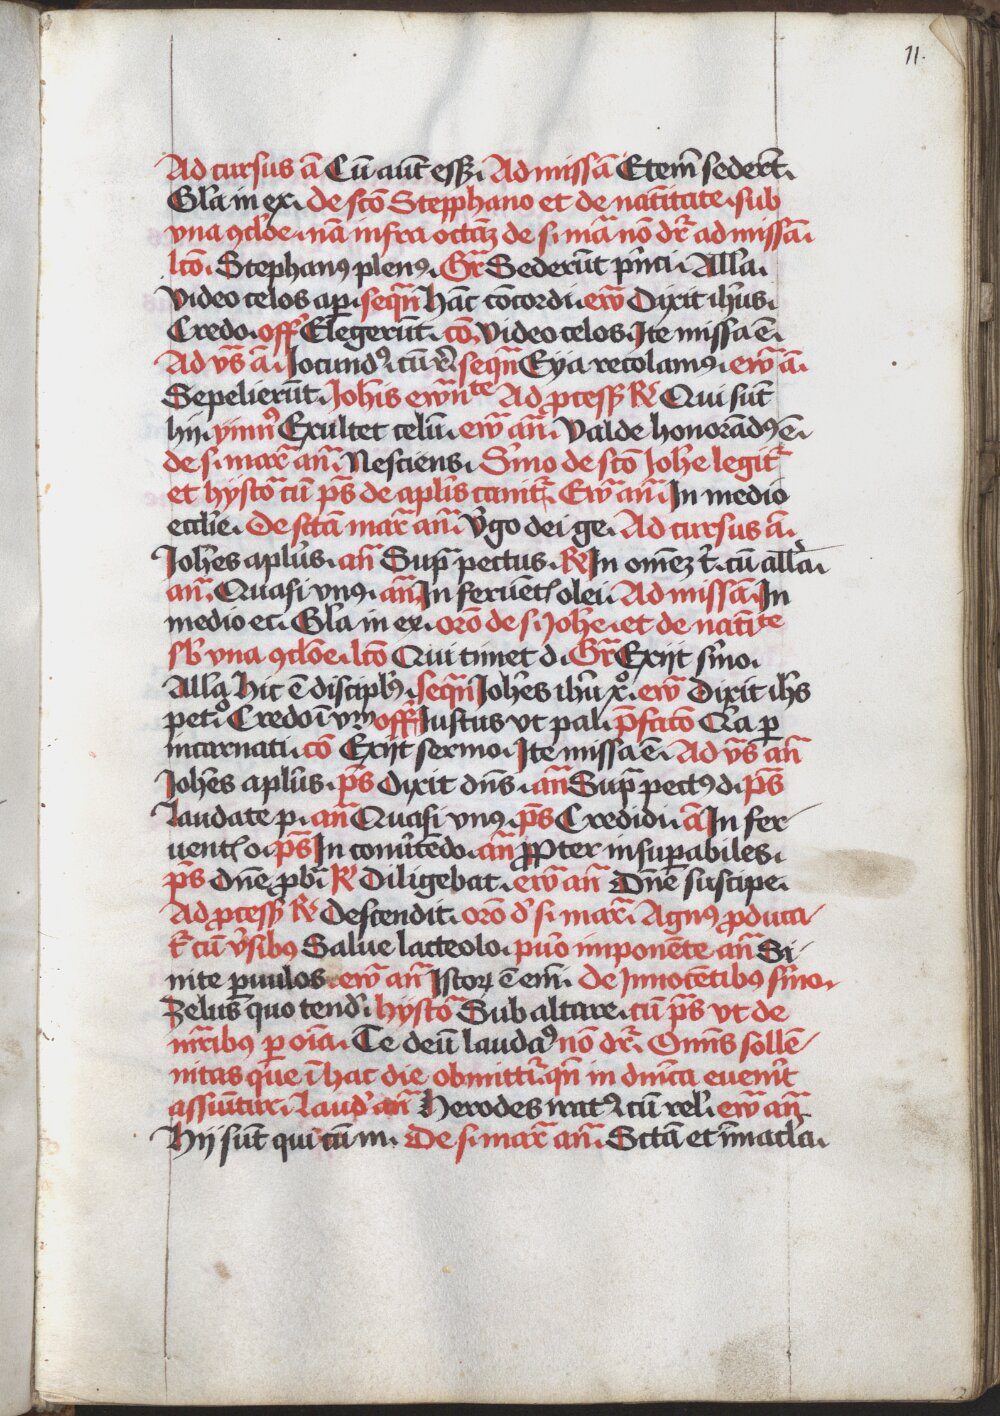 11.
Ad cursus añ Cū aūt esset. Ad missā Etem̄ sederūt.
Glā in ex. de scō Stepphano et de natītate. sub
vna ꝯcloe. nā infra octaꝫ de s. mā nō dr̄ ad missā.
lcō. Stephanꝰ plenꝰ. Gr̄ Sederūt prīci. Allā.
Video celos ap. seqñ hāc cōcordi. ew̄ Dixit ihūs.
Credo. off̄ Elegerūt. cō. Video celos. Ite missa ē.
Ad vs̄ añ. Iocundꝰ cū r̄. seqñ Eya recolamꝰ. ew̄ añ.
Sepelierūt. Johīs ewñte Ad ꝓcess̄ R̄ Qui sūt
hij. ymnꝰ Exultet celū. ew̄ añ. Valde honorādꝰ ē.
de s. mar̄ añ. Nesciens. Smo de scō Johe legitr̄
et hystō cū ps̄ de aplīs canitr̄. Ew̄ añ. In medio
ecclīe. De sctā mar̄ añ. Vgo dei ge. Ad cursus añ.
Johēs aplūs. añ Supra pectus. R̄ In omēꝫ t̄. cū allā.
añ. Quasi vnꝰ. añ. In feruēti olei. Ad missā. In
medio ec. Glā in ex. orō de s. Johe. et de natīte
sb̄ vna ꝯcloe. lcō Qui timet d. Gr̄ Exijt smo.
Allā Hic ē disciplꝰ. seqñ Johēs ihū x̊. ew̄ Dixit ihs̄
pet. Credo ī vnū off̄ Iustus vt pal. p̄fatō Q̄a ꝑ
incarnati. cō Exijt sermo. Ite missa ē. Ad vs̄ añ
Johēs aplūs. ps̄ Dixit dn̄s. añ Supra pectꝰ d. ps̄
Laudate p. añ Quasi vnꝰ. ps̄ Credidi. añ In fer
uenti o. ps̄ In cōuertēdo. añ Propter insuꝑabiles.
ps̄ Dn̄e ꝓbī R̄ Diligebat. ew̄ añ Dn̄e suscipe.
Ad ꝓcess̄ R̄ Descendit. orō d̄ s. mar̄. Agnꝰ ꝓduca
tr̄ cū v̄sibꝰ Salue lacteolo. puō imponēte añ Si
nite paruulos. ew̄ añ Istoꝝ ē em̄. De Innocētibꝰ smo.
Zelus quo tend. hystō Sub altare. cū ps̄ vt de
mr̄ibꝰ ꝑ oīa. Te deū laudaꝰ nō dr̄. Omīs sollē
nitas que ī hac die obmittit̄. qñ in dn̄ica euenīt
assūitur. Laud̄ añ Herodes iratꝰ cū rel. ew̄ añ
Hij sūt qui cū m. De s. mar̄ añ. Sctā et īmaclā.